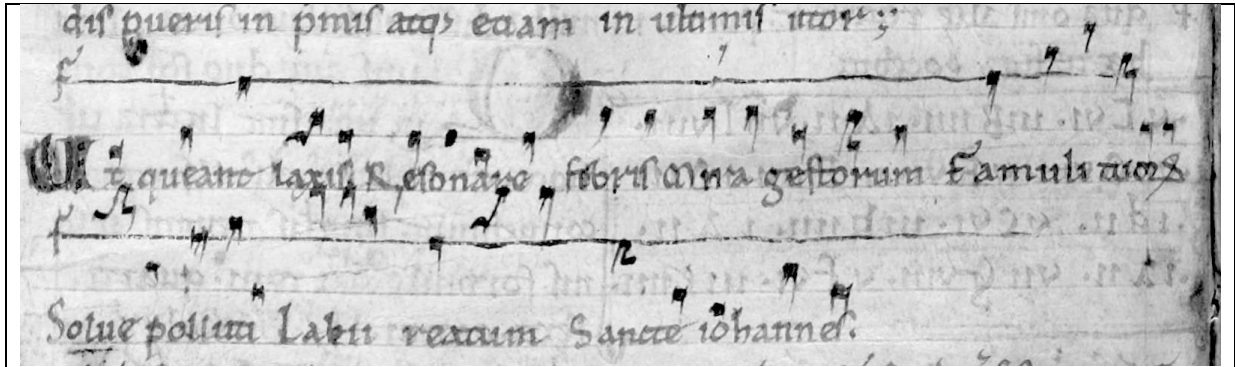 dis pueris in pmis atq; etiam in ultimis utor;
F
Ut queant laxis Resonare fibris Mira gestorum Famuli tuorꝝ
F
Solue polluti Labii reatum Sancte iohannes.